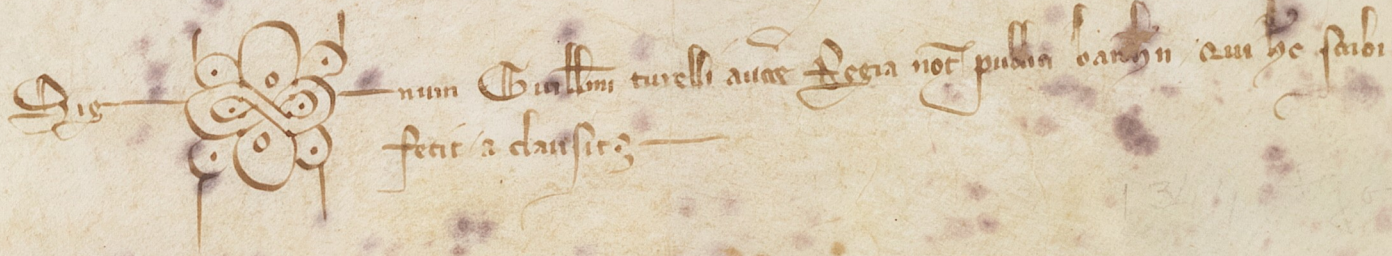 Sig num Guillmi turelli aucte Regia not publici barchn Qui hec scribi
fecit a clausit